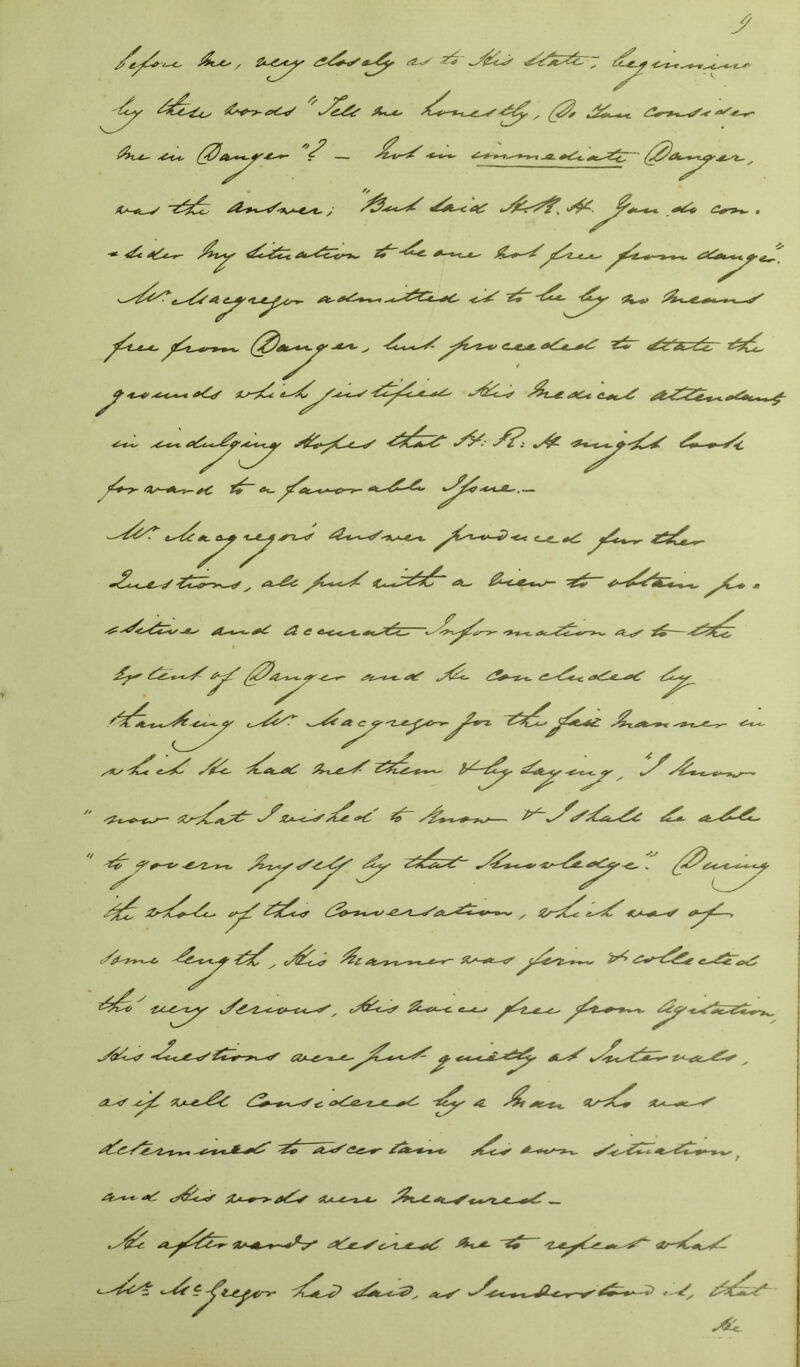 9
before me, very closely as to His State, beginning
by these words "Tell me honestly, Do You Consider
me in Danger"? — Not in immediate Danger,
was the Answer; "But said Mr H. You do Con-
-sider my situation to be one not free from danger."
Mr McGregor admitted it to be by no means
free from Danger, but proceeded to State the
grounds which justified His Medical Attendants
in indulging Hopes that H: R: H. might back
for ward to a favorable Issue.—
Mr McGregor's Answer provoked further
Questions, all put with a view to obtain po-
-sitive and accurate Information as to the
extent of Danger and He Concluded by
thanking Mr MacGregor for the full manner in
which He had met them & by saying, "I know
" now what I wished to know & I shall be able
" to govern myself by that Knowledge." During
the whole of this Conversation, which was of
some length, His Manner was firm & Collected
tho' very Serious, His Voice free from Agitation,
His Questions were put quietly at Intervals,
as if well Considered by a Man who was
determined to ascertain his own situation,
and His words were Measured —
He afterwards desired me to repeat what
Mr McGregor had said, as I understood it, that
He